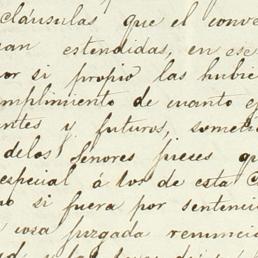 cláusulas que el conve
ran estendidas, en ese
or si propio las hubie
mplimiento de cuanto e
ntes y futuros, somet
delos Señores jueses qu
especial á los de esta C
mo si fuera por sentenci
cosa juzgada renuncia